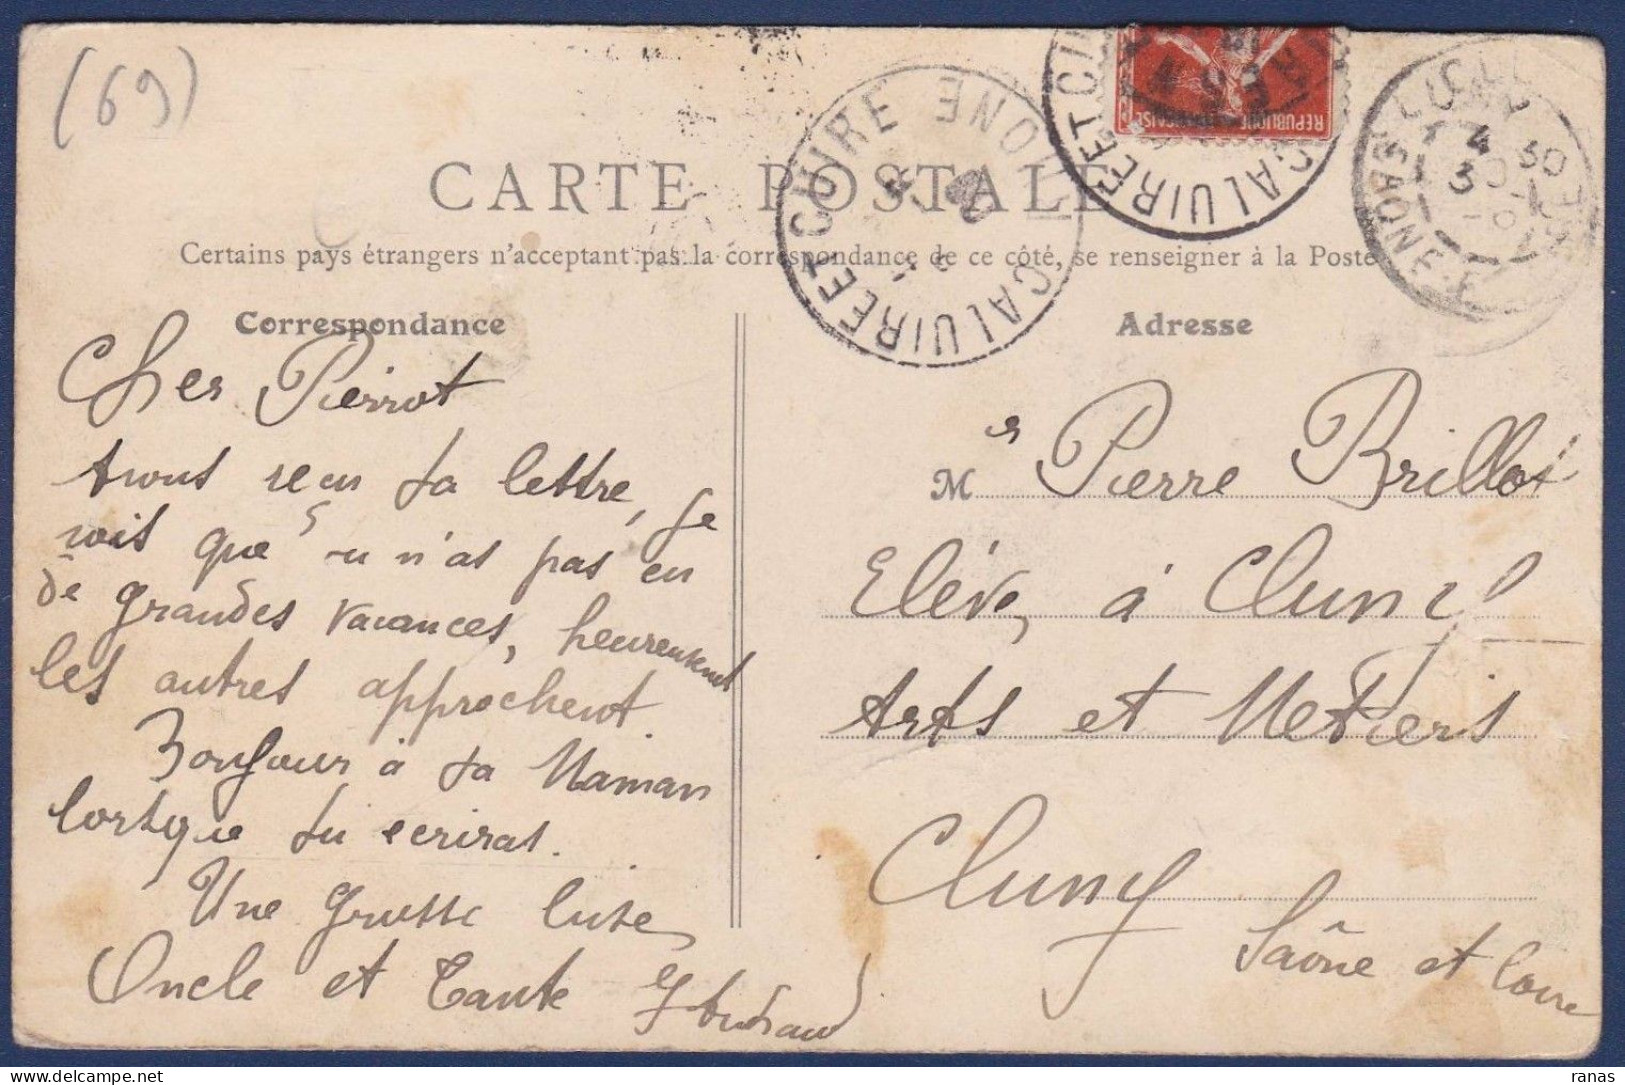 (69)
CARTE POSTALE
Certains pays étrangers n'acceptant pas la correspondance de ce côté, se renseigner à la Poste
CALUIRE ET CUIRE
RHONE
CALUIRE ET CUIRE
REPUBLIQUE FRANÇAISE
CLUNY
SAONE-&-
4 30
Correspondance
Cher Pierrot
Avons reçu ta lettre, je
vois que tu n'as pas eu
de grandes vacances, heureusement
les autres approchent.
Bonjour à ta Maman
lorsque tu ecriras.
Une grosse bise
Oncle et Tante
Adresse
Mr Pierre Brillot
Elève, à Cluny
Arts et Metiers
Cluny
Saône et Loire
ranas